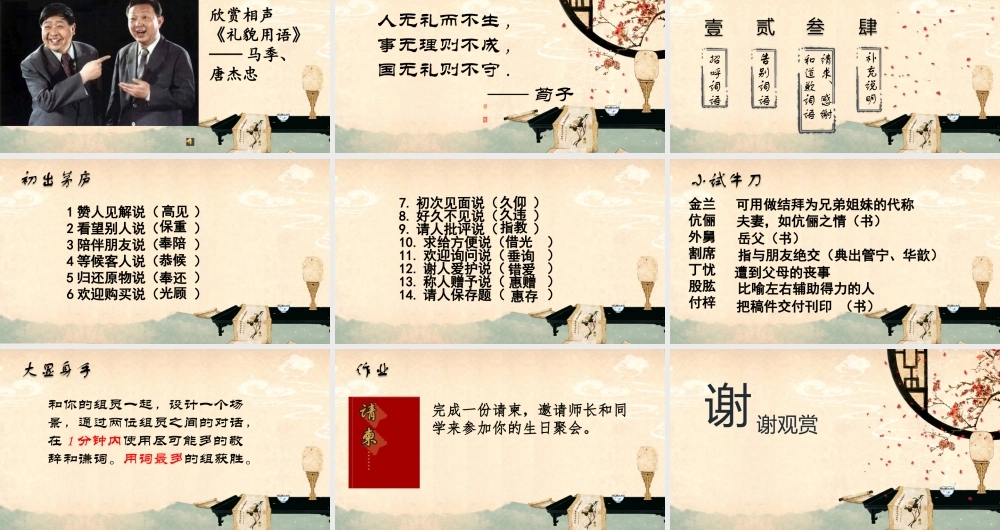 欣赏相声
《礼貌用语》
—— 马季、
唐杰忠
人无礼而不生，
事无理则不成，
国无礼则不守．
—— 荀子
壹 贰 叁 肆
招呼词语
告别词语
请求、感谢
和道歉词语
补充说明
初出茅庐
1 赞人见解说（ 高见 ）
2 看望别人说（ 保重 ）
3 陪伴朋友说（ 奉陪 ）
4 等候客人说（ 恭候 ）
5 归还原物说（ 奉还 ）
6 欢迎购买说（ 光顾 ）
7. 初次见面说（ 久仰 ）
8. 好久不见说（ 久违 ）
9. 请人批评说（ 指教 ）
10. 求给方便说（ 借光 ）
11. 欢迎询问说（ 垂询 ）
12. 谢人爱护说（ 错爱 ）
13. 称人赠予说（ 惠赠 ）
14. 请人保存题（ 惠存 ）
小试牛刀
金兰 可用做结拜为兄弟姐妹的代称
伉俪 夫妻，如伉俪之情（书）
外舅 岳父（书）
割席 指与朋友绝交（典出管宁、华歆）
丁忧 遭到父母的丧事
股肱 比喻左右辅助得力的人
付梓 把稿件交付刊印 （书）
大显身手
和你的组员一起，设计一个场
景，通过两位组员之间的对话，
在 1 分钟内使用尽可能多的敬
辞和谦词。用词最多的组获胜。
作业
请柬……
完成一份请柬，邀请师长和同
学来参加你的生日聚会。
谢谢观赏